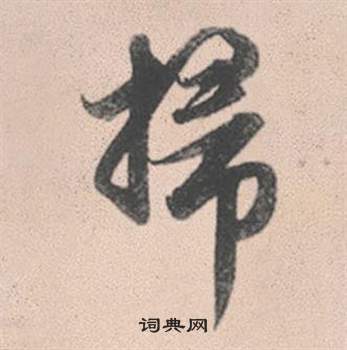 掃
词典网